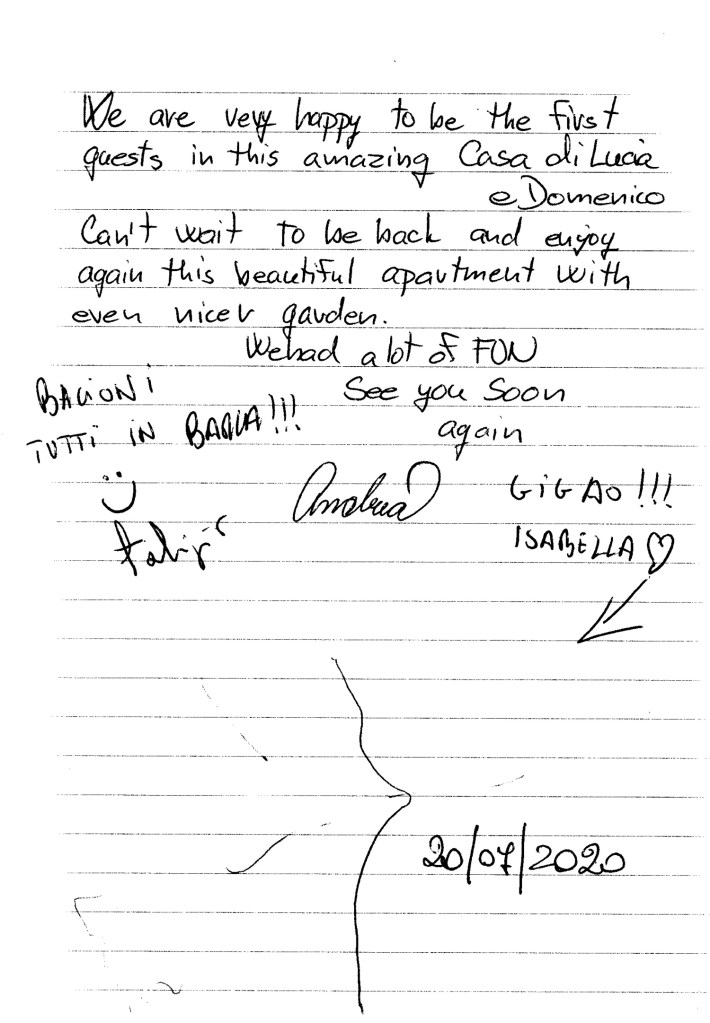 We are very happy to be the first
guests in this amazing Casa di Lucia
e Domenico
Can't wait to be back and enjoy
again this beautiful apartment with
even nicer garden.
We had a lot of FUN
See you soon
again
BACIONI
TUTTI IN BARCA!!!
Andrea
GIGAO!!!
ISABELLA
20/07/2020